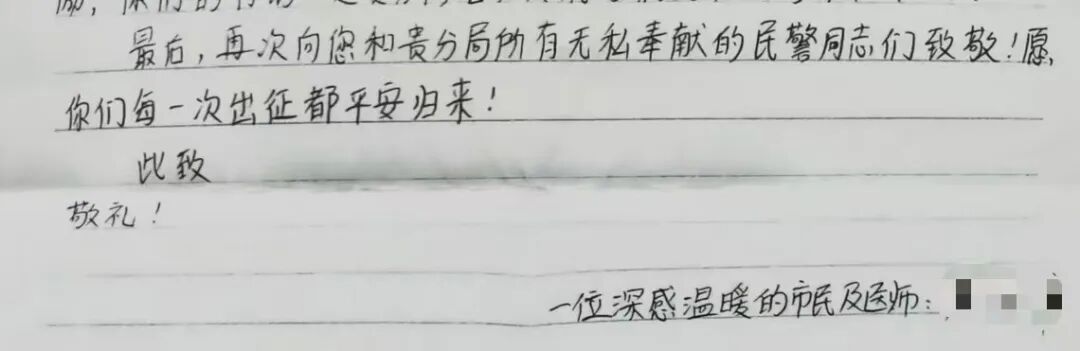 最后，再次向您和贵分局所有无私奉献的民警同志们致敬！愿
你们每一次出征都平安归来！
此致
敬礼！
一位深感温暖的市民及医师：